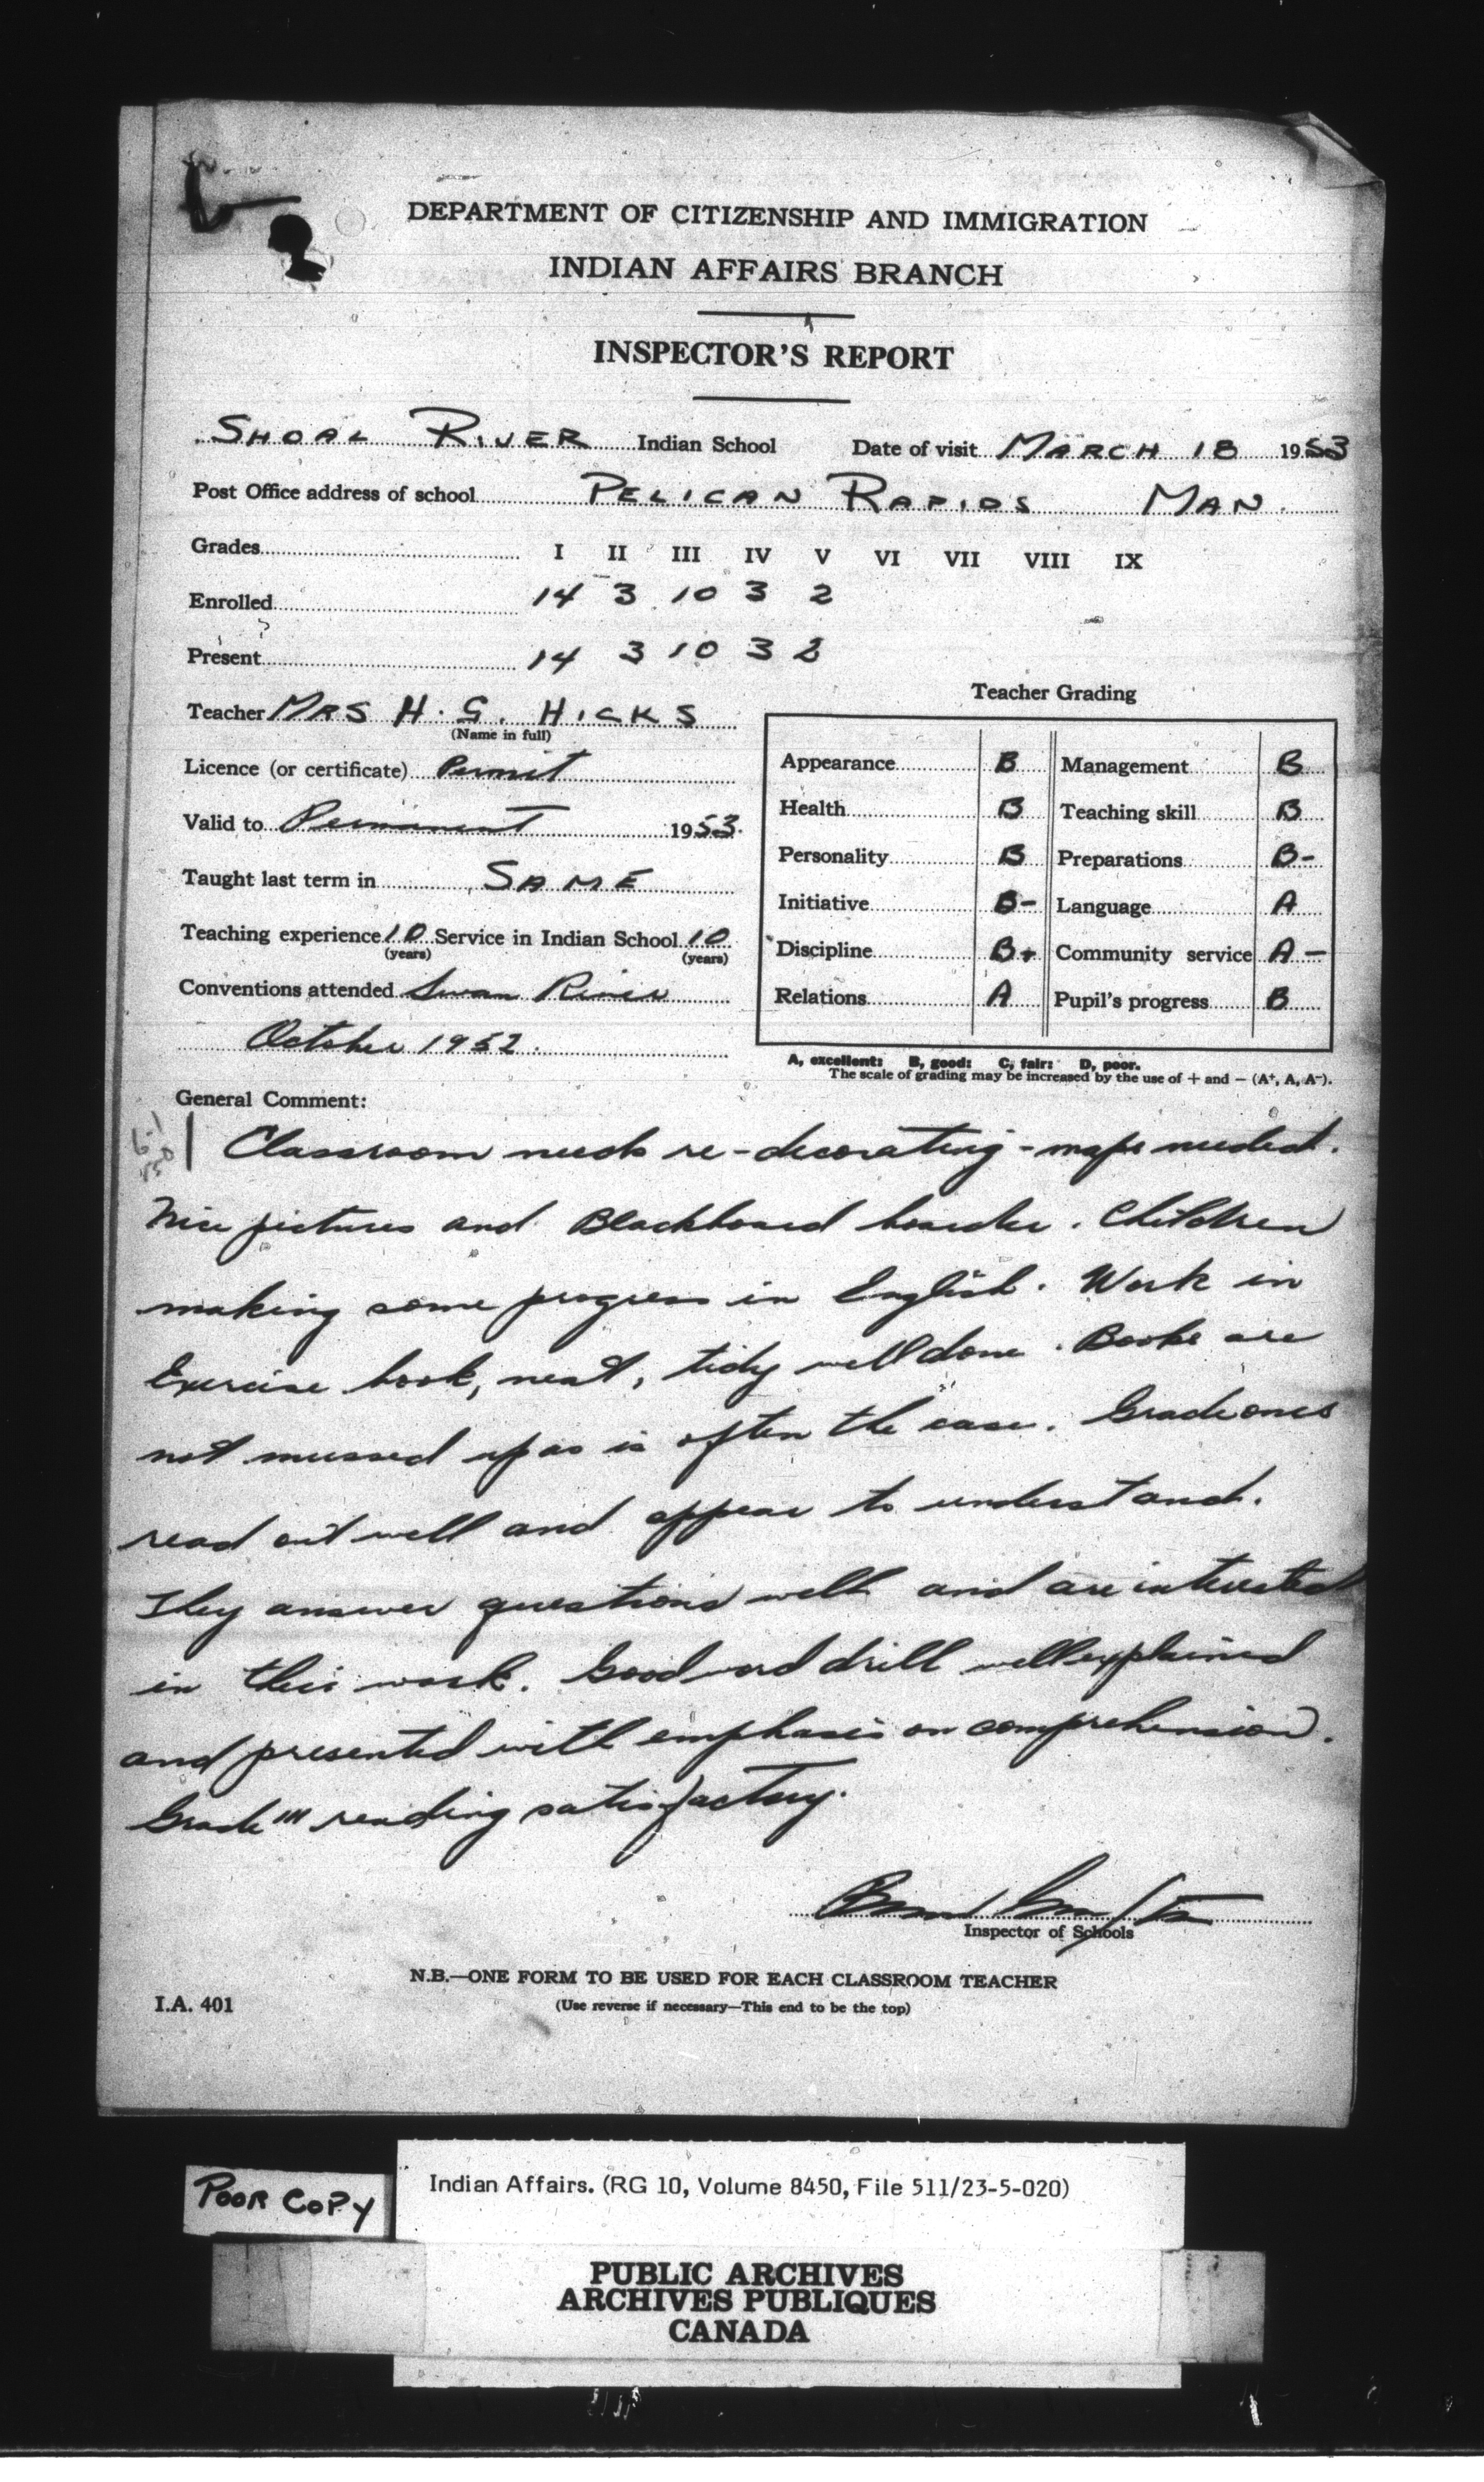 DEPARTMENT OF CITIZENSHIP AND IMMIGRATION
INDIAN AFFAIRS BRANCH
INSPECTOR'S REPORT
SHOAL RIVER Indian School Date of visit MARCH 18 1953
Post Office address of school PELICAN RAPIDS MAN.
Grades I II III IV V VI VII VIII IX
Enrolled 14 3 10 3 2
Present 14 3 10 3 2
Teacher MRS H. G. HICKS
(Name in full)
Licence (or certificate) Permit
Valid to Permanent 1953.
Taught last term in SAME
Teaching experience 10 Service in Indian School 10
(years) (years)
Conventions attended Swan River
October 1952.
Teacher Grading
Appearance B Management B
Health B Teaching skill B
Personality B Preparations B-
Initiative B- Language A
Discipline B+ Community service A-
Relations A Pupil's progress B
A, excellent: B, good: C, fair: D, poor.
The scale of grading may be increased by the use of + and - (A+, A, A-).
General Comment:
Classroom needs re-decorating - maps needed.
Nice pictures and Blackboard boarder. Children
making some progress in English. Work in
Exercise book, neat, tidy well done. Books are
not mussed up as is often the case. Grade ones
read out well and appear to understand.
They answer questions well and are interested
in their work. Good word drill well explained
and presented with emphasis on comprehension.
Grade III reading satisfactory.
Inspector of Schools
N.B.—ONE FORM TO BE USED FOR EACH CLASSROOM TEACHER
I.A. 401 (Use reverse if necessary—This end to be the top)
POOR COPY
Indian Affairs. (RG 10, Volume 8450, File 511/23-5-020)
PUBLIC ARCHIVES
ARCHIVES PUBLIQUES
CANADA